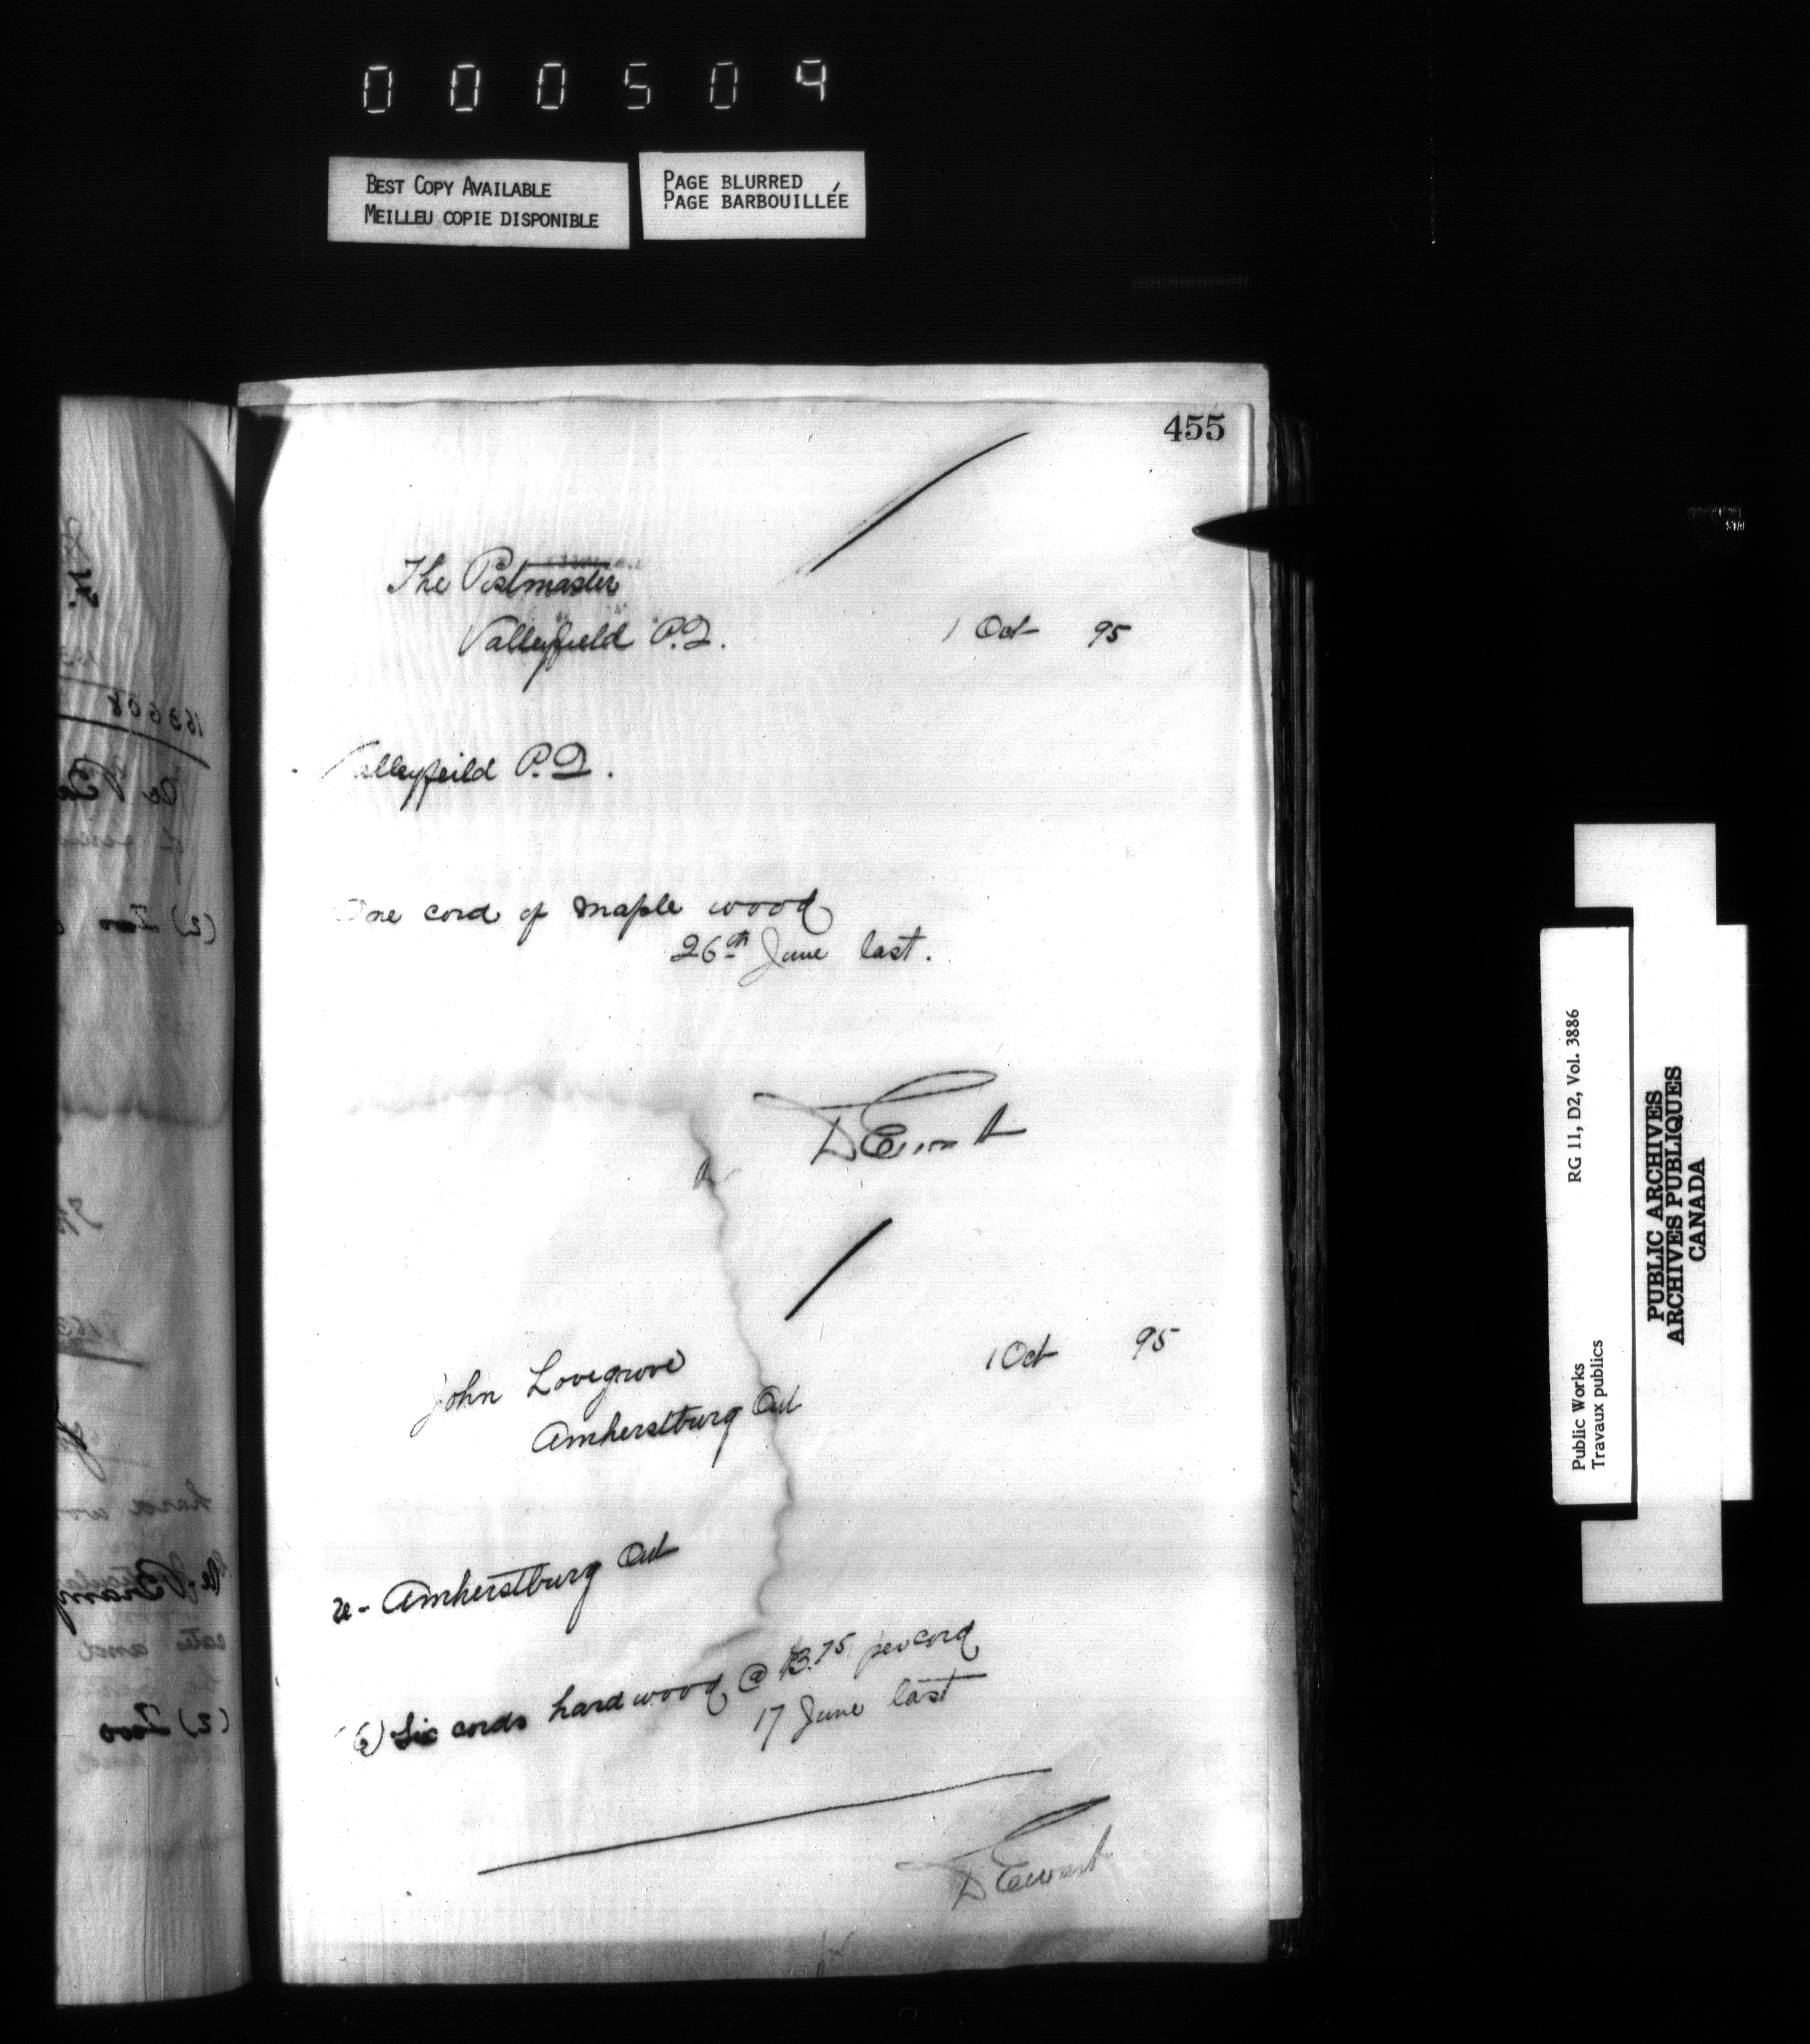 000504
BEST COPY AVAILABLE
MEILLEU COPIE DISPONIBLE
PAGE BLURRED
PAGE BARBOUILLÉE
455
The Postmaster
Valleyfield P.Q.
1 Oct 95
Valleyfeild P.Q.
One cord of maple wood
26th June last.
D Ewart
John Lovegrove
1 Oct 95
Amherstburg Ont
re- Amherstburg Ont
(6) Six cords hard wood @ $3.75 per cord
17 June last
D Ewart
RG 11, D2, Vol. 3886
Public Works
Travaux publics
PUBLIC ARCHIVES
ARCHIVES PUBLIQUES
CANADA